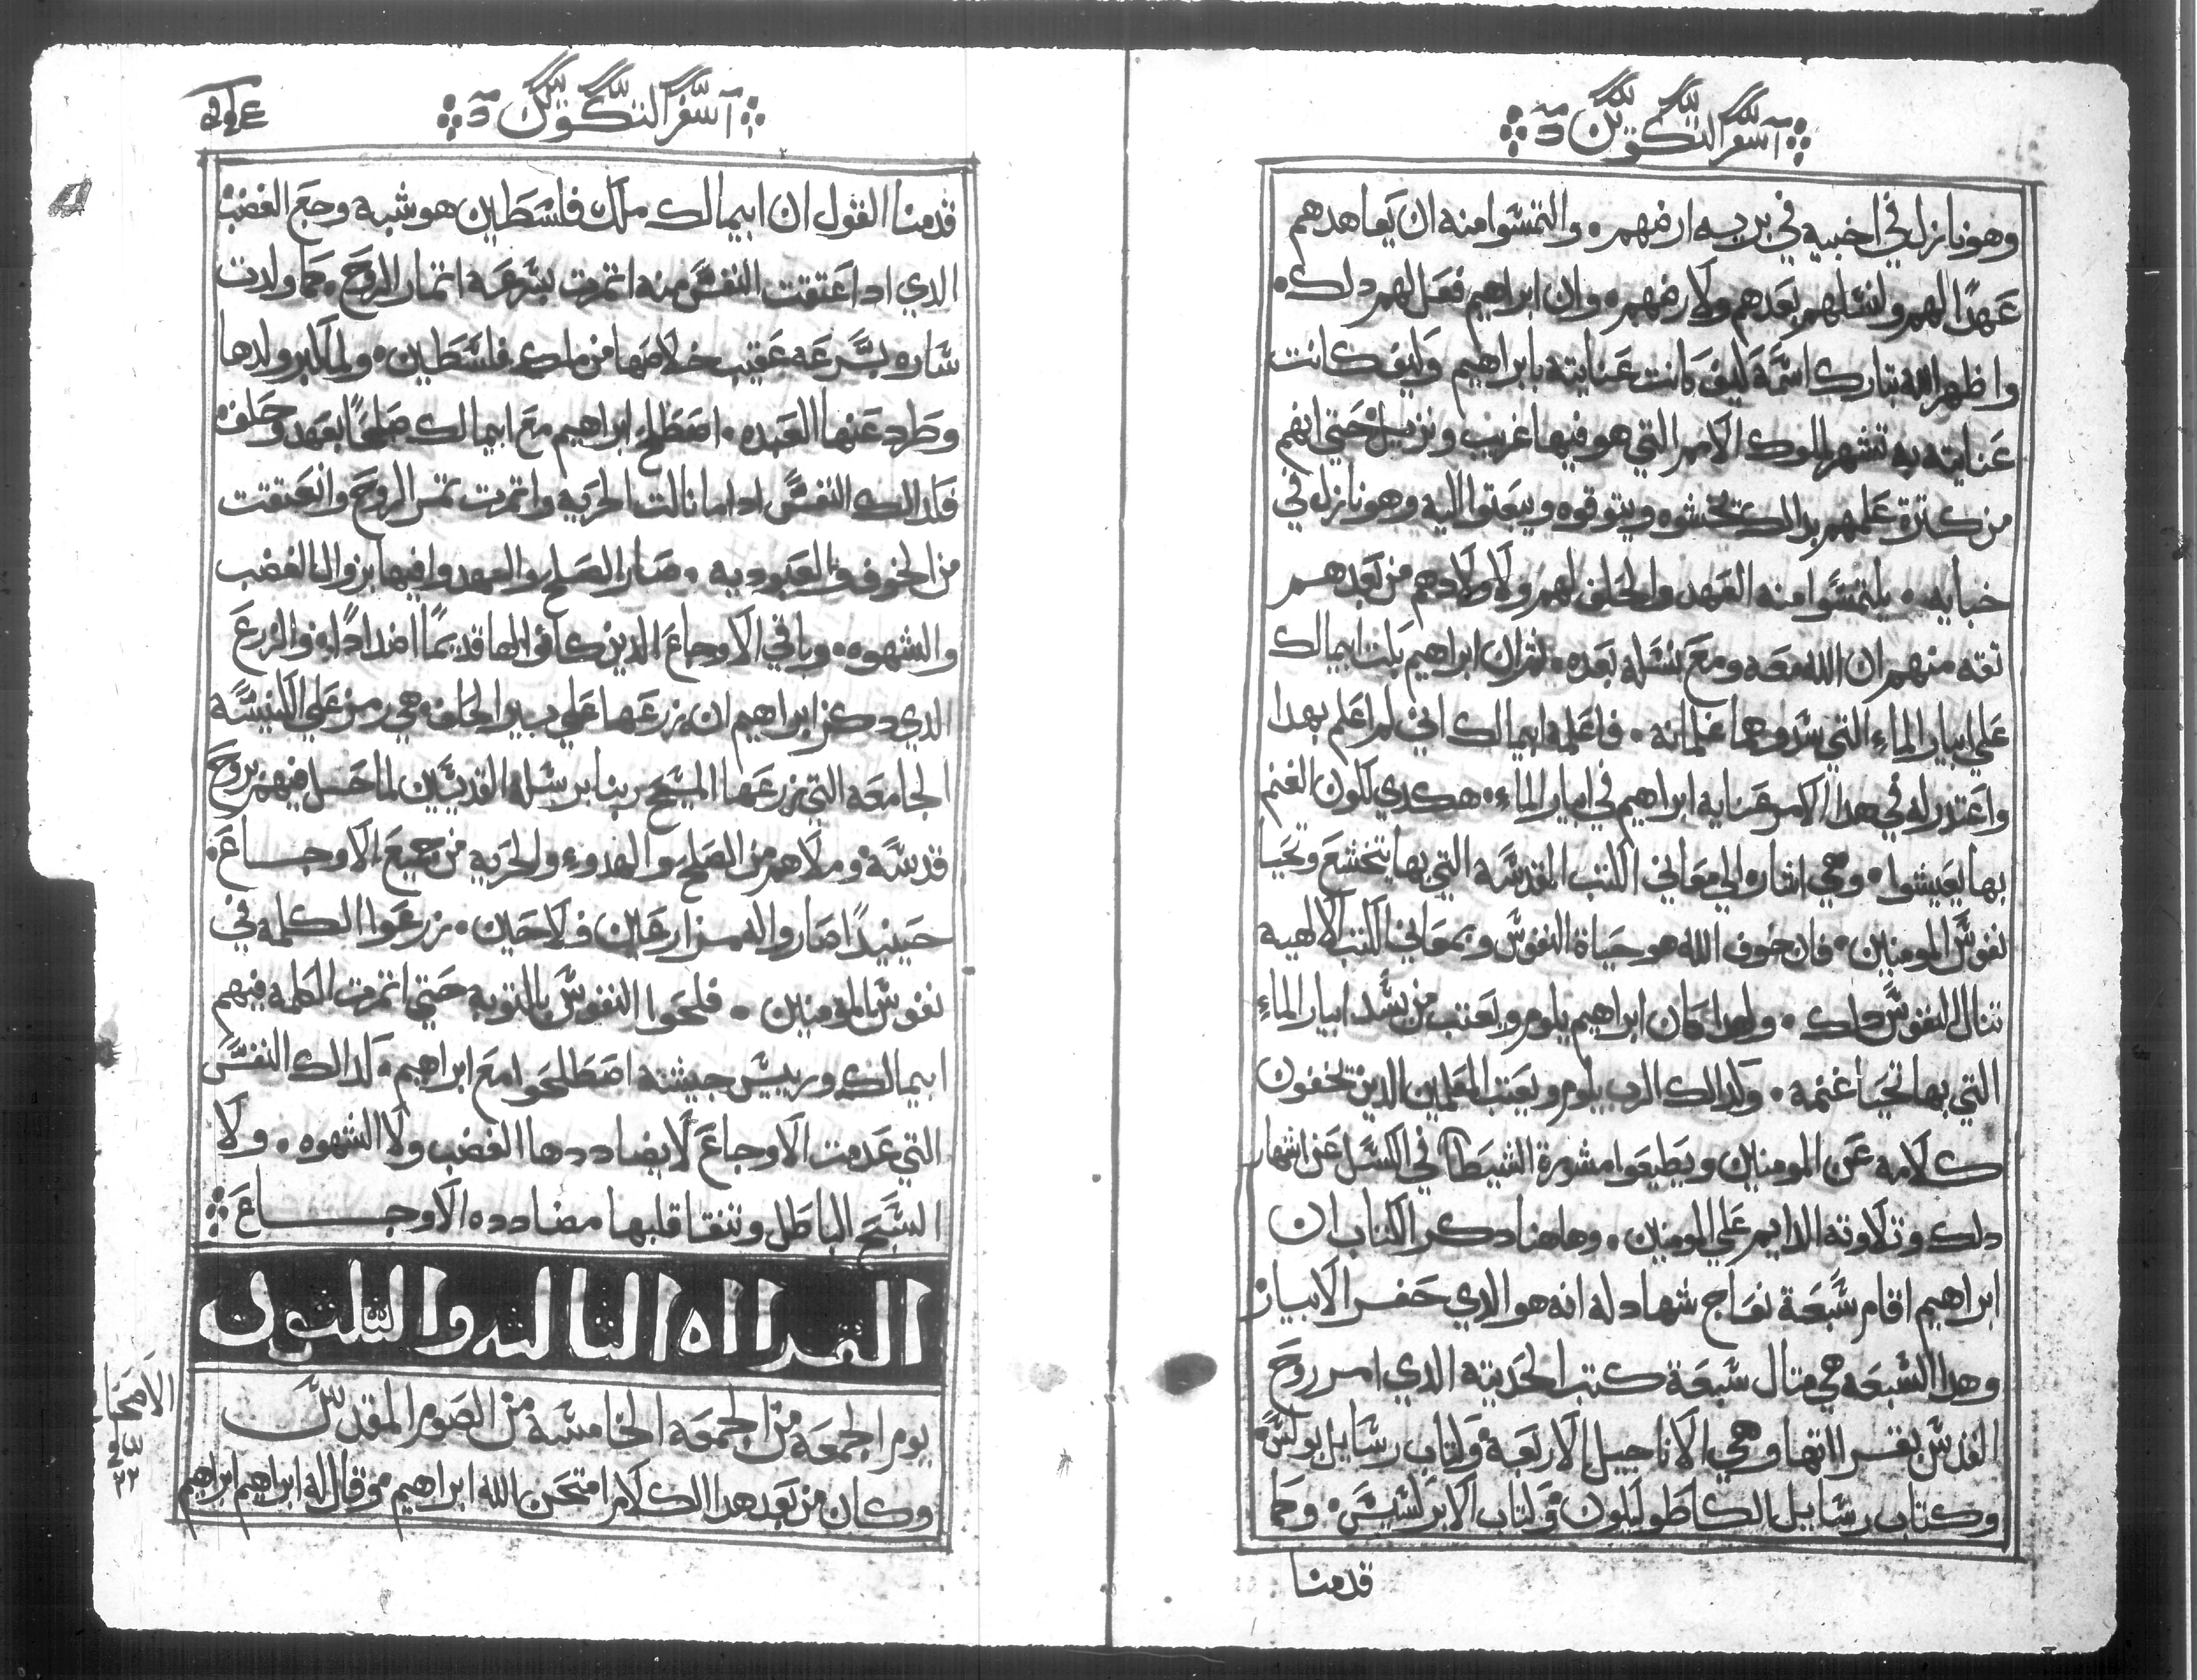 سفر التكوين
وهو نازل في اخبيه في بريه ارضهم. والتمسوا منه ان يعاهدهم
عهدًا لهم ولنسلهم بعدهم ولارضهم. وان ابراهيم فعل لهم دلك.
واظهر الله تبارك اسمه كيف كانت عنايته بابراهيم وكيف كانت
عنايته به تشهر لملوك الامم التي هو فيها غريب ونزيل حتي انهم
من كترة علمهم بدالك تخشوه ويتوقوه ويبعتوا اليه وهو نازل في
خبايه. يلتمسوا منه العهد والحلف لهم ولاولادهم من بعدهم
تقه منهم ان الله معه ومع نسله بعده. تم ان ابراهيم بكت ابيمالك
علي ابيار الماء التي سدوها غلمانه. فاعلمه ابيمالك اني لم اعلم بهدا
واعتدر له في هدا الامر عنايه ابراهيم في ابيار الماء. هكدي لكون الغنم
بها يعيشوا. وهي اشاره الي معاني الكتب المقدسه التي بها تخشع وتحيا
نفوس المومنين. فان خوف الله هو حياة النفوس وبمعاني الكتب الالهيه
تنال النفوس دلك. ولهدا كان ابراهيم يلوم ويعتب من يسد ابيار الماء
التي بها تحيا غنمه. وكدالك الرب يلوم ويعتب المعلمين الدين يخفون
كلامه عن المومنين ويطيعوا مشورة الشيطان في الكسل عن اشهار
دلك وتلاوته الدايم علي المومنين. وهاهنا دكر الكتاب ان
ابراهيم اقام سبعة نعاج شهاده له انه هو الدي حفر الابيار
وهدا السبعه هي متال سبعة كتب الحديته الدي امر روح
القدس بقراتها وهي الاناجيل الاربعة وكتاب رسايل بولس.
وكتاب رسايل الكاطوليكون وكتاب الابركسيس. وكما
قدمنا
سفر التكوين
قدمنا القول ان ابيمالك ملك فلسطين هو شبه وجع الغضب
الدي ادا عتقت النفس منه اتمرت بسرعه اتمار الروح. كما ولدت
ساره بسرعه عقيب خلاصها من ملك فلسطين. ولما كبر ولدها
وطرد عنها العبده. اصطلح ابراهيم مع ابيمالك صلحًا بعهد وحلف
فكدالك النفس ادا ما نالت الحريه واتمرت تمر الروح وانعتقت
من الخوف والعبوديه. صار الصلح والعهد وافيها بزوال الغضب
والشهوه. وباقي الاوجاع الدين كانوا لها قديمًا اضدادًا. والزرع
الدي دكر ابراهيم ان زرعها علي بير الحلف. هي رمز علي الكنيسه
الجامعه التي زرعها المسيح ربنا برسله القديسين لما حل فيهم بروح
قدسه وملاهم من الصلح والهدوء والحريه من جميع الاوجاع.
حينيدًا صاروا له مزارعين فلاحين. زرعوا الكلمه في
نفوس المومنين. فلحوا النفوس بالتوبه حتي اتمرت الكلمه فيهم
ابيمالك ورييس جيشه اصطلحوا مع ابراهيم. كدالك النفس
التي عدمت الاوجاع لا يضاددها الغضب ولا الشهوه. ولا
السبح الباطل وتنقا قلبها مضادده الاوجاع
القراه التالته والتلتون
يوم الجمعه من الجمعه الخامسه من الصوم المقدس
وكان من بعد هدا الكلام امتحن الله ابراهيم وقال له ابراهيم ابراهيم
الاصحاح
٢٢